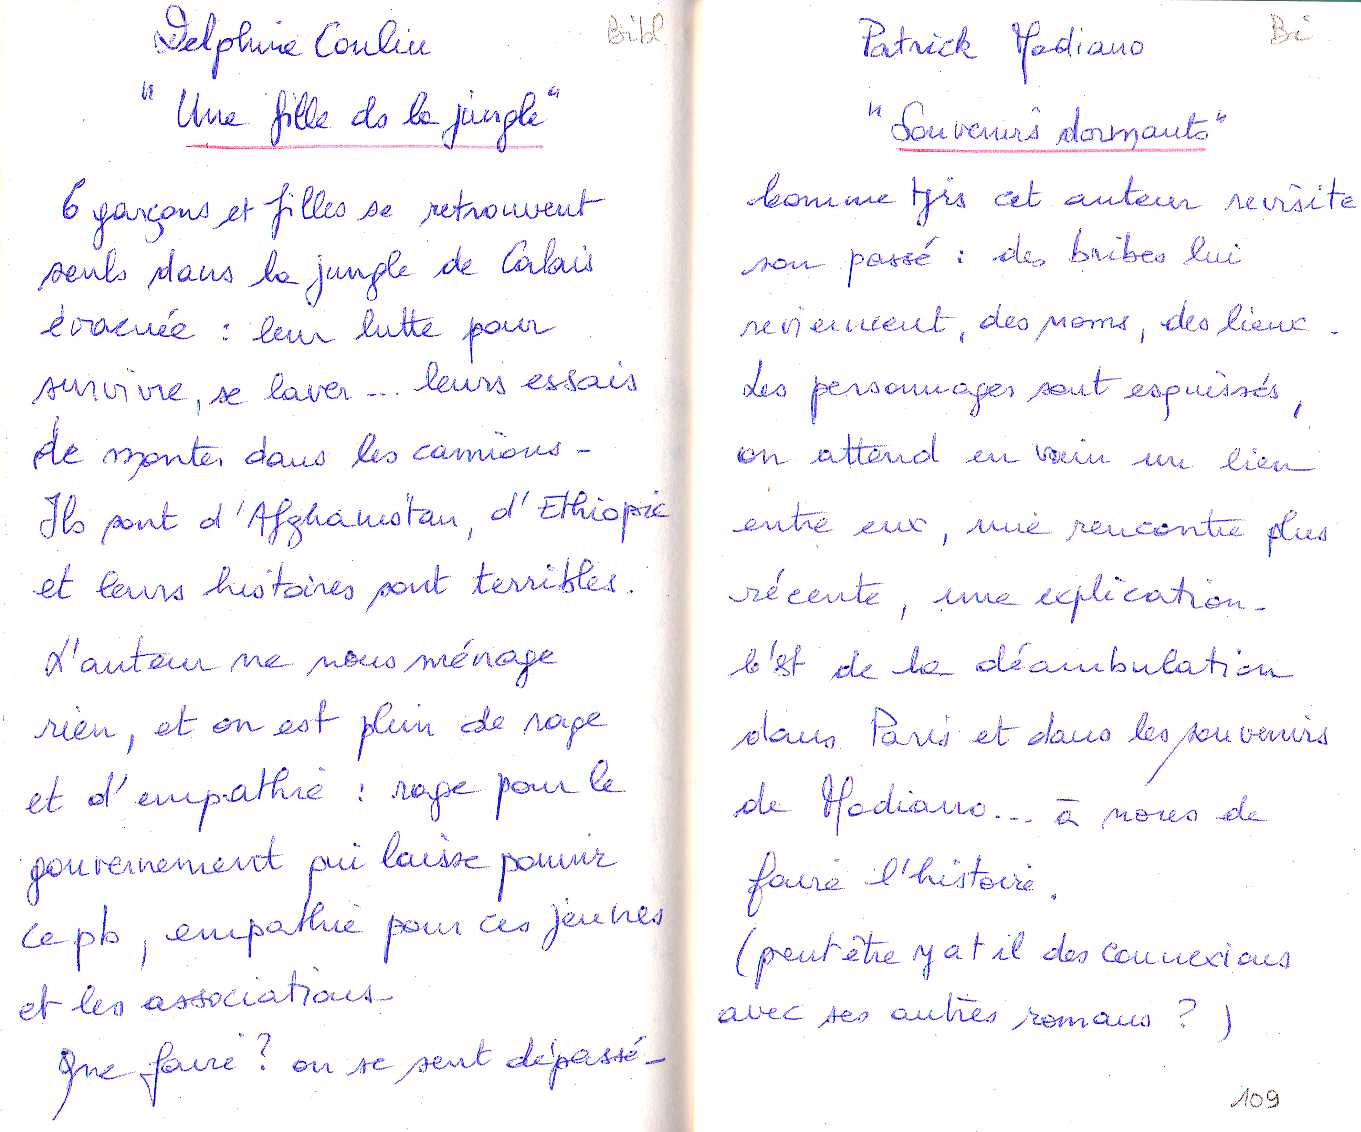 Delphine Coulin
Bibl
"Une fille de la jungle"
6 garçons et filles se retrouvent
seuls dans la jungle de Calais
évacuée : leur lutte pour
survivre, se laver ... leurs essais
de monter dans les camions -
Ils sont d'Afghanistan, d'Ethiopie
et leurs histoires sont terribles.
L'auteur ne nous ménage
rien, et on est plein de rage
et d'empathie : rage pour le
gouvernement qui laisse pourrir
ce pb, empathie pour ces jeunes
et les associations -
Que faire ? on se sent dépassé -
Patrick Modiano
Bi
"Souvenirs dormants"
Comme tjrs cet auteur revisite
son passé : des bribes lui
reviennent, des noms, des lieux.
Les personnages sont esquissés,
on attend en vain un lien
entre eux, une rencontre plus
récente, une explication -
C'est de la déambulation
dans Paris et dans les souvenirs
de Modiano ... à nous de
faire l'histoire.
(peut être y a t il des connexions
avec ses autres romans ? )
109